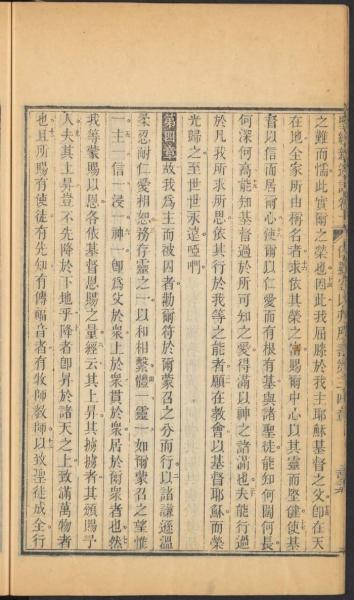 之難而懦此實爾之榮也因此我屈膝於我主耶穌基督之父卽在天
在地全家所由稱名者求依其榮之富賜爾中心以其靈而堅健使基
督以信而居爾心使爾以仁愛而有根有基與諸聖徒能知何闊何長
何深何高能知基督過於所可知之愛得滿以神之諸滿也夫能行過
於凡我所求所思依其行於我等之能者願在教會以基督耶穌而榮
光歸之至世世永遠啞們
第四章故我爲主而被囚者勸爾符於爾蒙召之分而行以諸謙遜溫
柔忍耐仁愛相恕務存靈之一以和相繫一體一靈一如爾蒙召之望惟
一主一信一浸一神一卽爲父於衆上於衆貫於衆居於爾衆者也然
我等蒙賜以恩各依基督恩賜之量經云其上昇其擄擄者其頒賜予
人夫其上昇豈不先降於下地乎降者卽昇於諸天之上致滿萬物者
也且所賜有使徒有先知有傳福音者有牧師教師以致聖徒成全行